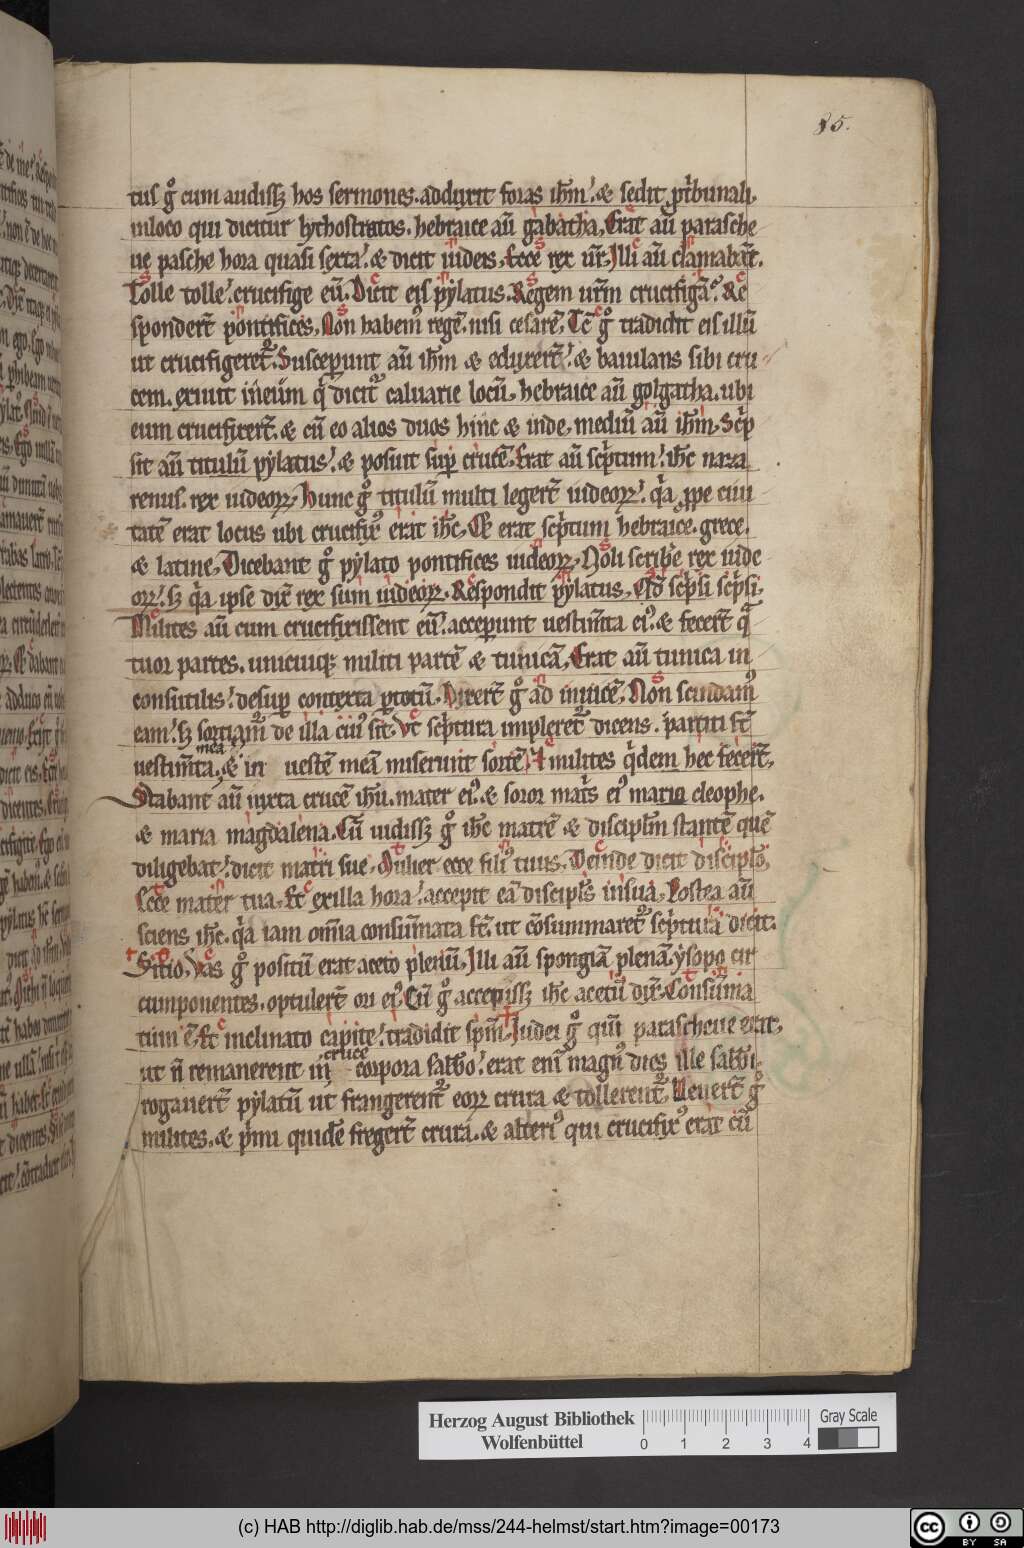 85.
tus g̊ cum audiss; hos sermones. adduxit foras ih̄m. & sedit ꝓ tribunali.
inloco qui dicitur lythostratos. hebraice aū gabatha. Erat aū parasche
ue pasche hora quasi sexta. & dicit iudeis. Ecce rex ur̄. Illi aū clamabār.
Tolle tolle. crucifige eū. Dicit eis pylatus. Regem urm̄ crucifigā. Re
sponderr̄ pontifices. Non habemꝰ regē. nisi cesarē. Tc̄ g̊ tradidit eis illū
ut crucifigeret᷑. Susceperunt aū ih̄m & eduxerr̄. & baiulans sibi cru
cem. exiuit in eum q̇ dicit᷑ caluarie locū. hebraice aū golgatha. ubi
eum crucifixerr̄. & cū eo alios duos hinc & inde. mediū aū ih̄m. Scͥp
sit aū titulū pylatus. & posuit suꝑ crucē. Erat aū scͥptum. ih̄c naza
renus. rex iudeoꝝ. Hunc g̊ titulū multi legerr̄ iudeoꝝ. q̇a ꝓpe ciui
tatē erat locus ubi crucifixꝰ erat ih̄c. Et erat scͥptum hebraice. grece.
& latine. Dicebant g̊ pylato pontifices iudeoꝝ. Noli scribe rex iude
oꝝ. s; q̇a ipse dix̄ rex sum iudeoꝝ. Respondit pylatus. Qd̄ scͥpsi scͥpsi.
Milites aū cum crucifixissent eū. acceperunt uestim̄ta eiꝰ. & fecerr̄ q̇
tuor partes. unicuiq; militi partē & tunicā. Erat aū tunica in
consutilis. desuꝑ contexta ꝑ totū. Dixerr̄ g̊ ad inuicē. Non scindamꝰ
eam. s; sortiam᷑ de illa cuiꝰ sit. Vt scͥptura impleret᷑ dicens. partiti st̄
uestim̄ta mea & in uestē meā miserunt sortē. Et milites q̇dem hec fecerr̄.
Stabant aū iuxta crucē ih̄u. mater eiꝰ. & soror mat͛s eiꝰ maria cleophe.
& maria magdalena. Cū uidiss; g̊ ih̄c matrē & discipl̄m stantē quē
diligebat. dicit matri sue. Mulier ecce filiꝰ tuus. Deinde dicit discipl̄o.
Ecce mater tua. Et exilla hora. accepit eā discipl̄s in sua. Postea aū
sciens ih̄c. q̇a iam om̄ia consum̄ata st̄. ut cōsummaret᷑ scͥptura dicit.
Sitio. Vas g̊ positū erat aceto plenū. Illi aū spongiā plenā. ysopo cir
cumponentes. optulerr̄ ori eiꝰ. Cū g̊ accepiss; ih̄c acetū dix̄. Consum̄a
tum ē. Et inclinato capite. tradidit spm̄. Iudei g̊ qm̄ parasceue erat.
ut ñ remanerent in cruce corpora sabb̄o. erat eni magnꝰ dies ille sabb̄i.
rogauerr̄ pylatū ut frangerent᷑ eoꝝ crura & tollerent᷑. Uenerr̄ g̊
milites. & pͥmi quidē fregerr̄ crura. & alteriꝰ qui crucifixꝰ erat cū
Herzog August Bibliothek
Wolfenbüttel
0 1 2 3 4
Gray Scale
(c) HAB http://diglib.hab.de/mss/244-helmst/start.htm?image=00173
cc BY SA